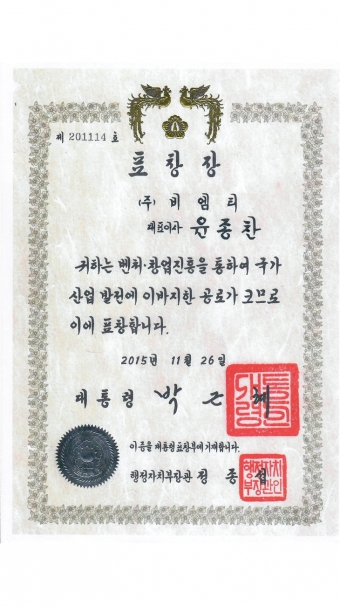 제 201114 호
표 창 장
(주) 비 엠 티
대표이사 윤종찬
귀하는 벤처·창업진흥을 통하여 국가
산업 발전에 이바지한 공로가 크므로
이에 표창합니다.
2015년 11월 26일
대통령 박근혜
이 증을 대통령표창부에 기재합니다.
행정자치부장관 정종섭
행정자치
부장관인